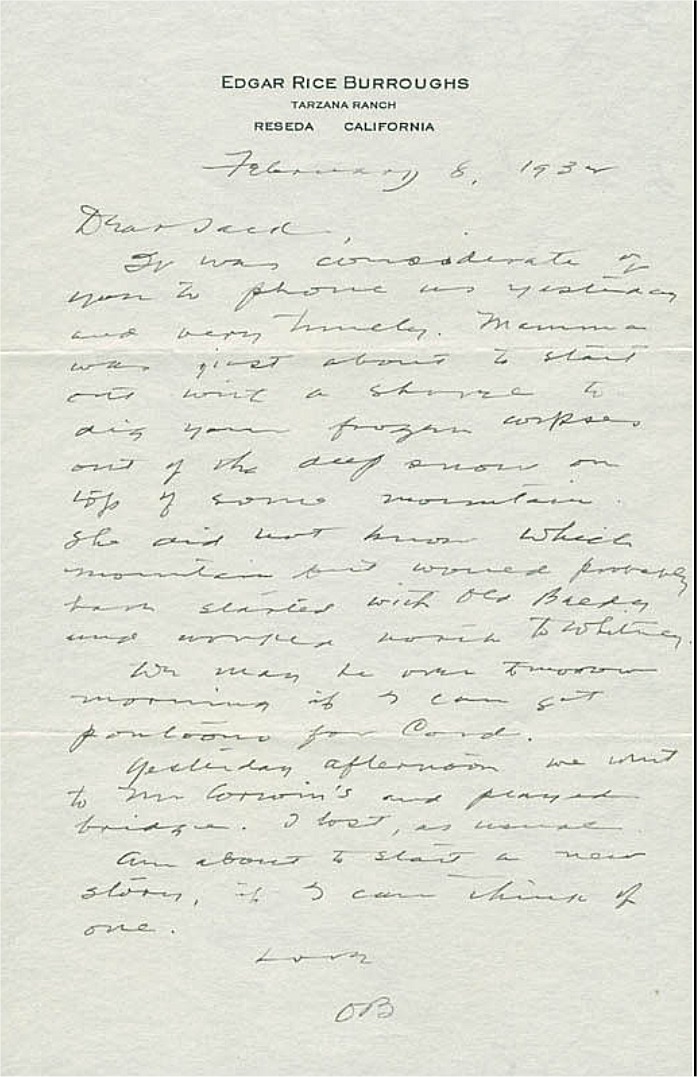 EDGAR RICE BURROUGHS
TARZANA RANCH
RESEDA CALIFORNIA
February 8, 1932
Dear Jack,
It was considerate of
you to phone us yesterday
and very timely. Mamma
was just about to start
out with a shovel to
dig your frozen corpses
out of the deep snow on
top of some mountain.
She did not know which
mountain but would probably
have started with Old Baldy
and worked north to Whitney.
We may be over tomorrow
morning if I can get
pontoons for Cord.
Yesterday afternoon we went
to Mr Corwin's and played
bridge. I lost, as usual
Am about to start a new
story, if I can think of
one.
Love
OB